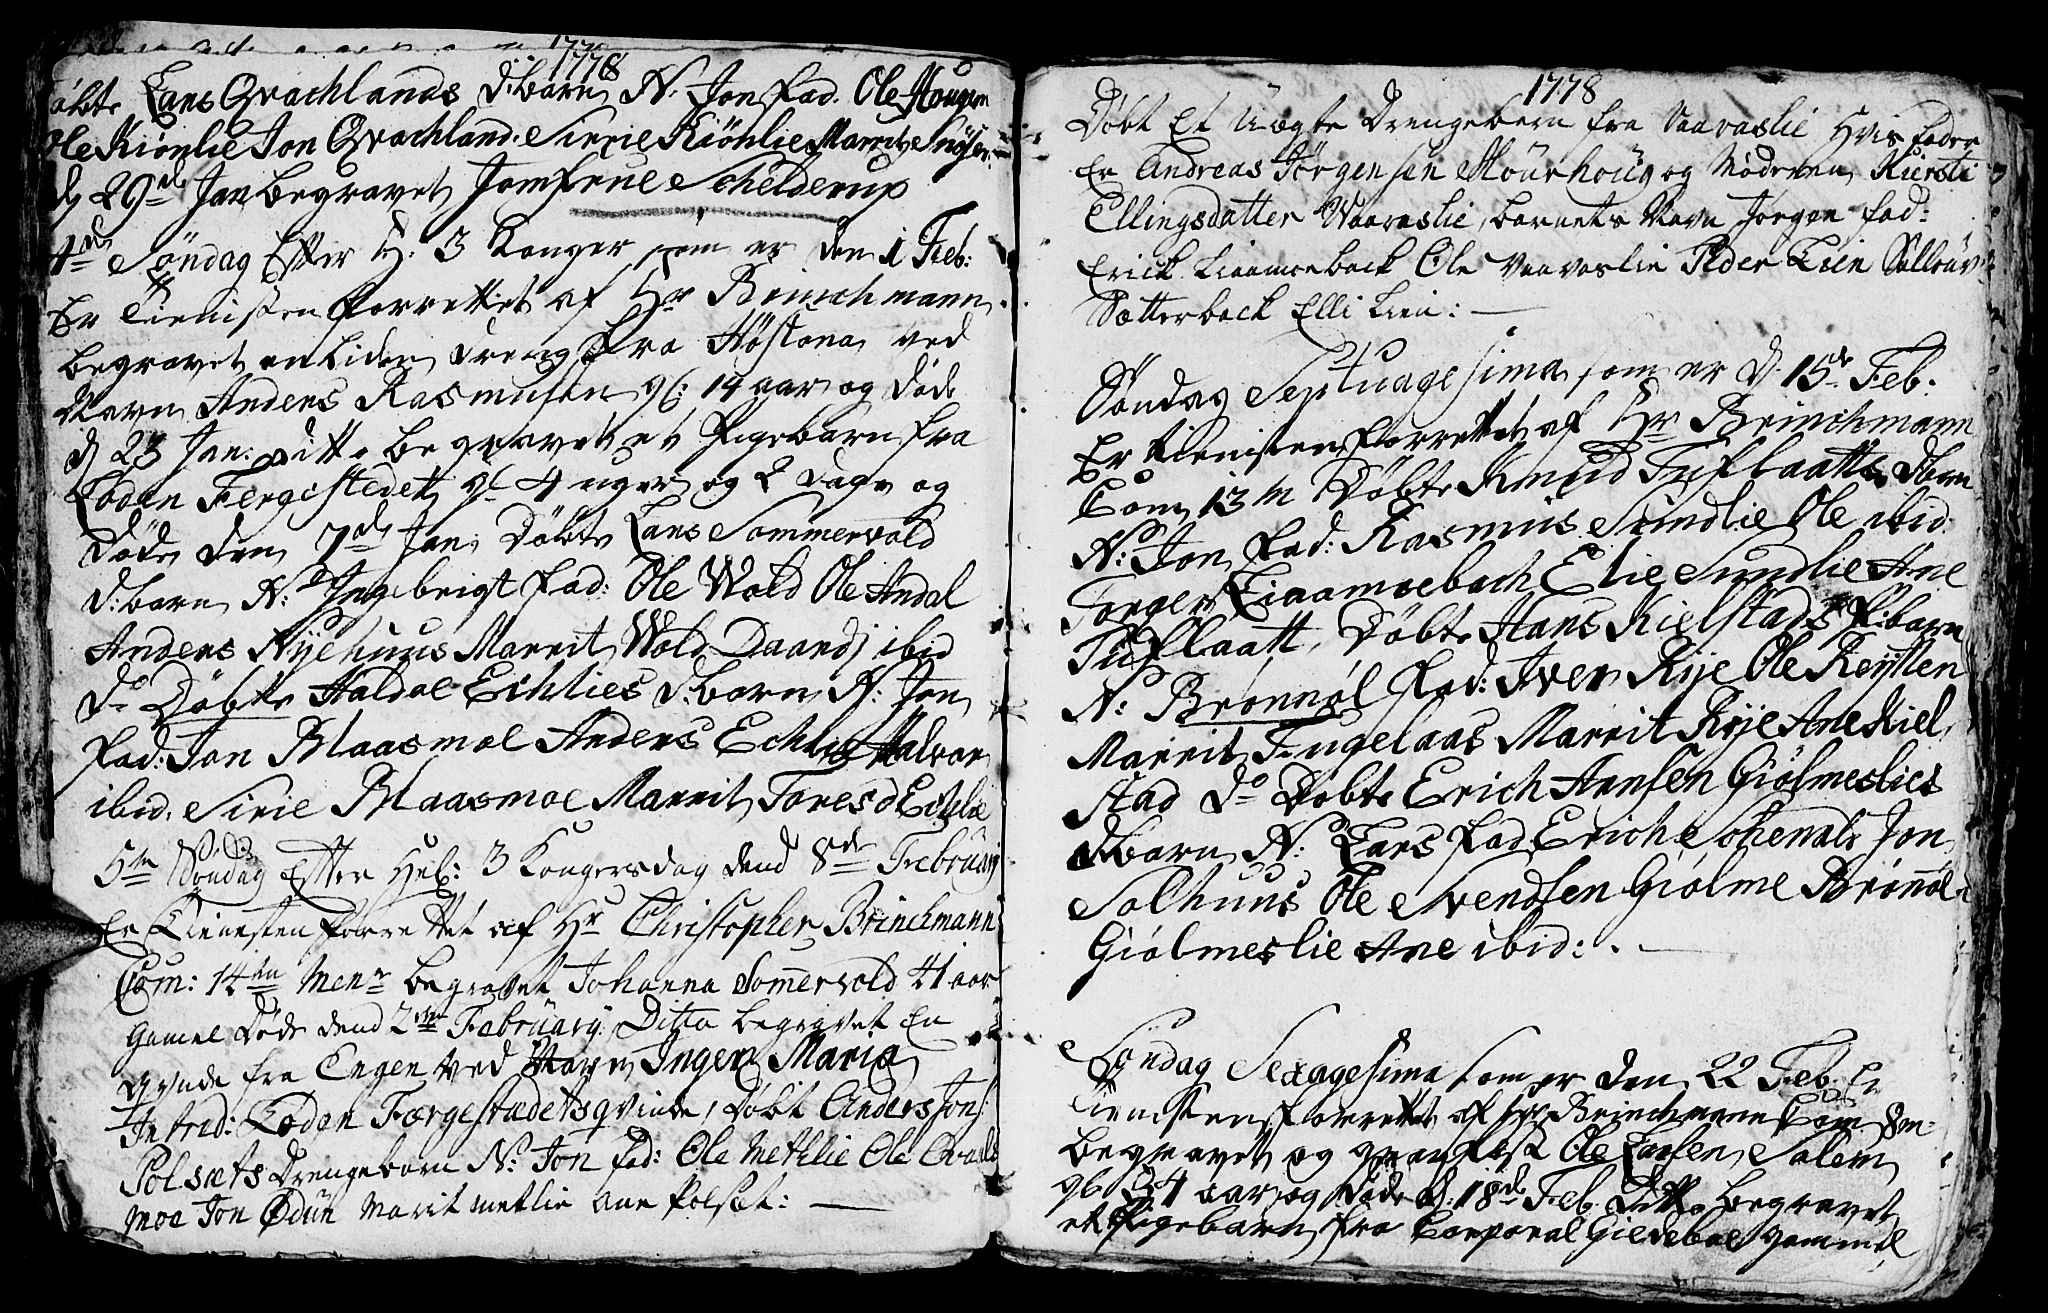 1778
døbte Lars Qvachlands d:barn N. Jon fad. Ole Hougen
Ole Kiönlie Jon Qvachland. Sirrie Kiönlie Marrit
d 29de Jan begravet Jomfrue Schelderup
4de Söndag Efter H. 3 Konger som er den 1 Feb:
Er Tienisten forrettet af Hr Brinchmann
begravet en liden dreng fra Höstona ved
Navn Anders Rasmusen gl: 14 aar og döde
d 23 Jan: ditto begravet et Pigebarn fra
Eboen Fergestedett gl 4 uger og 2 dage og
döde den 7de Jan; Döbte Lars Sommervold
d:barn N: Ingebrigt fad: Ole Wold Ole Andal
Anders Nyehuus Marrit Wold Daardj ibid
do Döbte Haldoe Echlies d:barn N: Jon
fad: Jon Blaasmoe Anders Echlie Halvor
ibid. Sirie Blaasmoe Marrit Toresd Echlie
5te Söndag Efter Hel: 3 Kongersdag dend 8de February
Er Tienesten forrettet af Hr Christopher Brinchmann
Com: 14ten Menr begravet Johanna Somervold 41 aar
gamel döde dend 2den February Ditto begravet En
qvinde fra Engen ved Navn Inger Maria
Introd: Eboen Færgestædets qvinde, döbt Anders Jons
Polsæts Drengebarn N: Jon fad: Ole Metlie Ole
moe Jon Ödün Marit metlie ane Polset: —
1778
Döbt Et Uægte Drengebarn fra Vaavaslie Hvis fader
Er Andreas Jörgensen Mourhoug og Moderen Kiersti
Ellingsdatter Waavaslie, barnets Navn Jörgen fad:
Erick Liaamoeback Ole Vaavaslie Peder Lien Sollöuv
Sætterback Elli Lien: —
Söndag Septuagesima som er d. 15de Feb.
Er tienisten forrettet af Hr Brinchmann
Com 13 m Döbte Knud Tuflaatts d:barn
N: Jon fad: Rasmus Sundlie Ole ibid:
Torger Liaamoebach Elie Sundlie Ane
Tuflaatt, Döbte Hans Kielstads P:barn
N: Brönnöl fad: Iver Rije Ole Röytten
Marrit Fugelaas Marrit Rije Ane Kiel
stad do Döbte Erich Arnsen Giölmeslies
d:barn N: Lars fad: Erich Jon
Solhuus Ole Svendsen Giölme Brönöl
Giölmeslie Ane ibid: . —
Söndag Sexagesima som er den 22 Feb. Er
Tienesten forrettet af Hr Brinchmann Com 8 m
begravet og Ole Larsen Solem
gl 34 aar og döde d: 18de Feb. Ditto begravet
et Pigebarn fra Corporal Gildeboe gammel